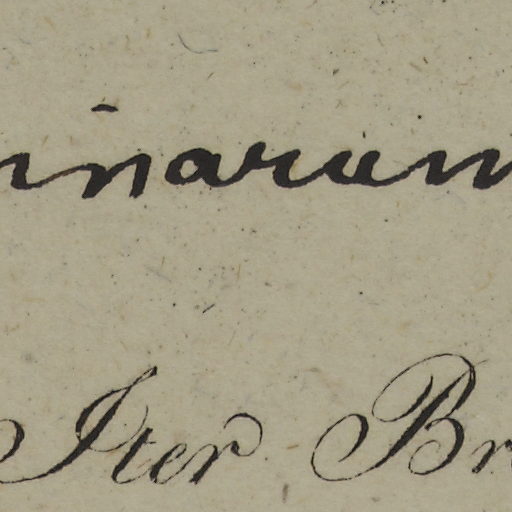 inarum
Iter Br